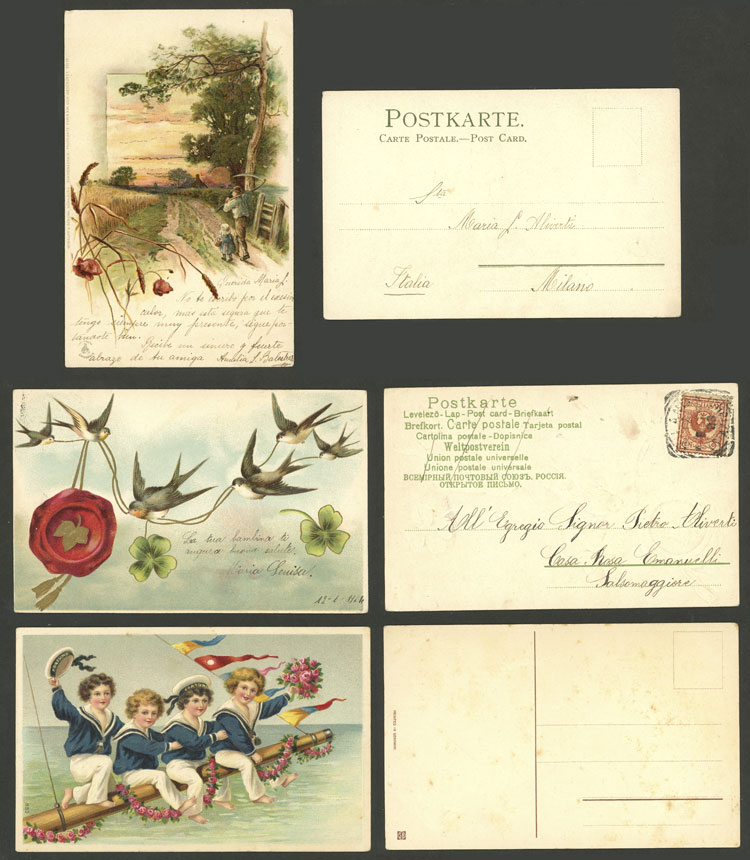 Querida Maria J.
No te escribo por el excesivo
calor, mas este segura que te
tengo siempre muy presente,
Recibe un sincero y fuerte
abrazo de tu amiga
POSTKARTE.
CARTE POSTALE.—POST CARD.
Maria J. Aliverti
Italia Milano
La tua bambina ti
augura buona salute.
Maria Luisa.
Postkarte
Levelezö-Lap-Post card-Briefkaart
Brefkort. Carte postale Tarjeta postal
Cartolina postale-Dopisnice
Weltpostverein
Union postale universelle
Unione postale universale
ВСЕМІРНЫЙ ПОЧТОВЫЙ СОЮЗЪ. РОССІЯ.
ОТКРЫТОЕ ПИСЬМО.
All' Egregio Signor Pietro Aliverti
Casa Rosa Emanuelli
Salsomaggiore